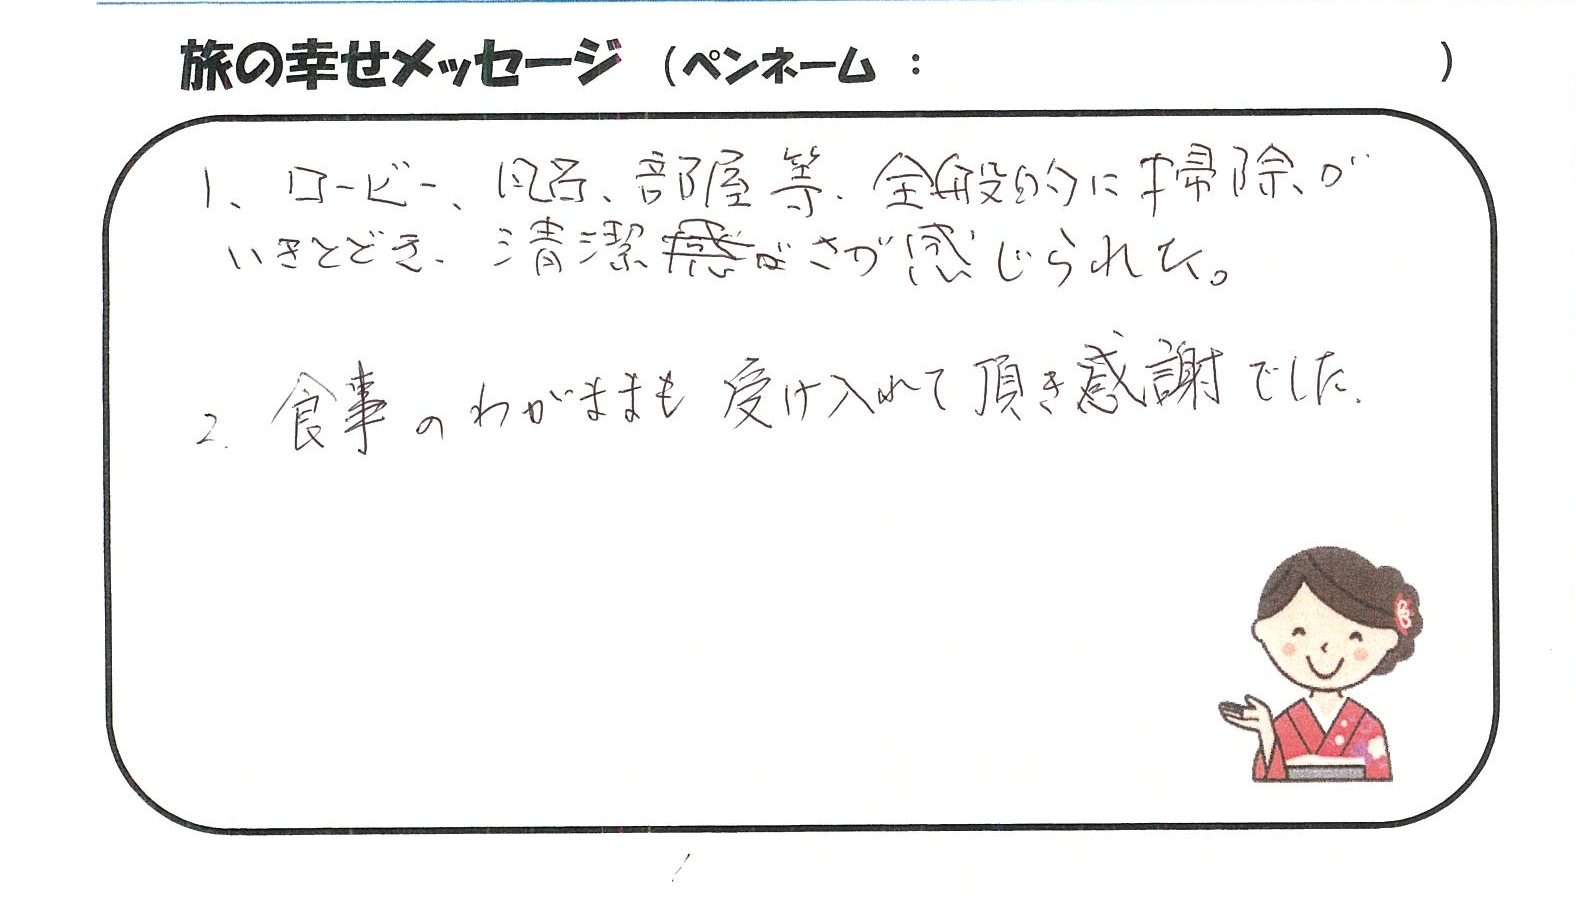 旅の幸せメッセージ （ペンネーム： ）
1、ロービー、風呂、部屋等、全般的に掃除が
いきとどき、清潔さが感じられた。
2. 食事のわがままも受け入れて頂き感謝でした.